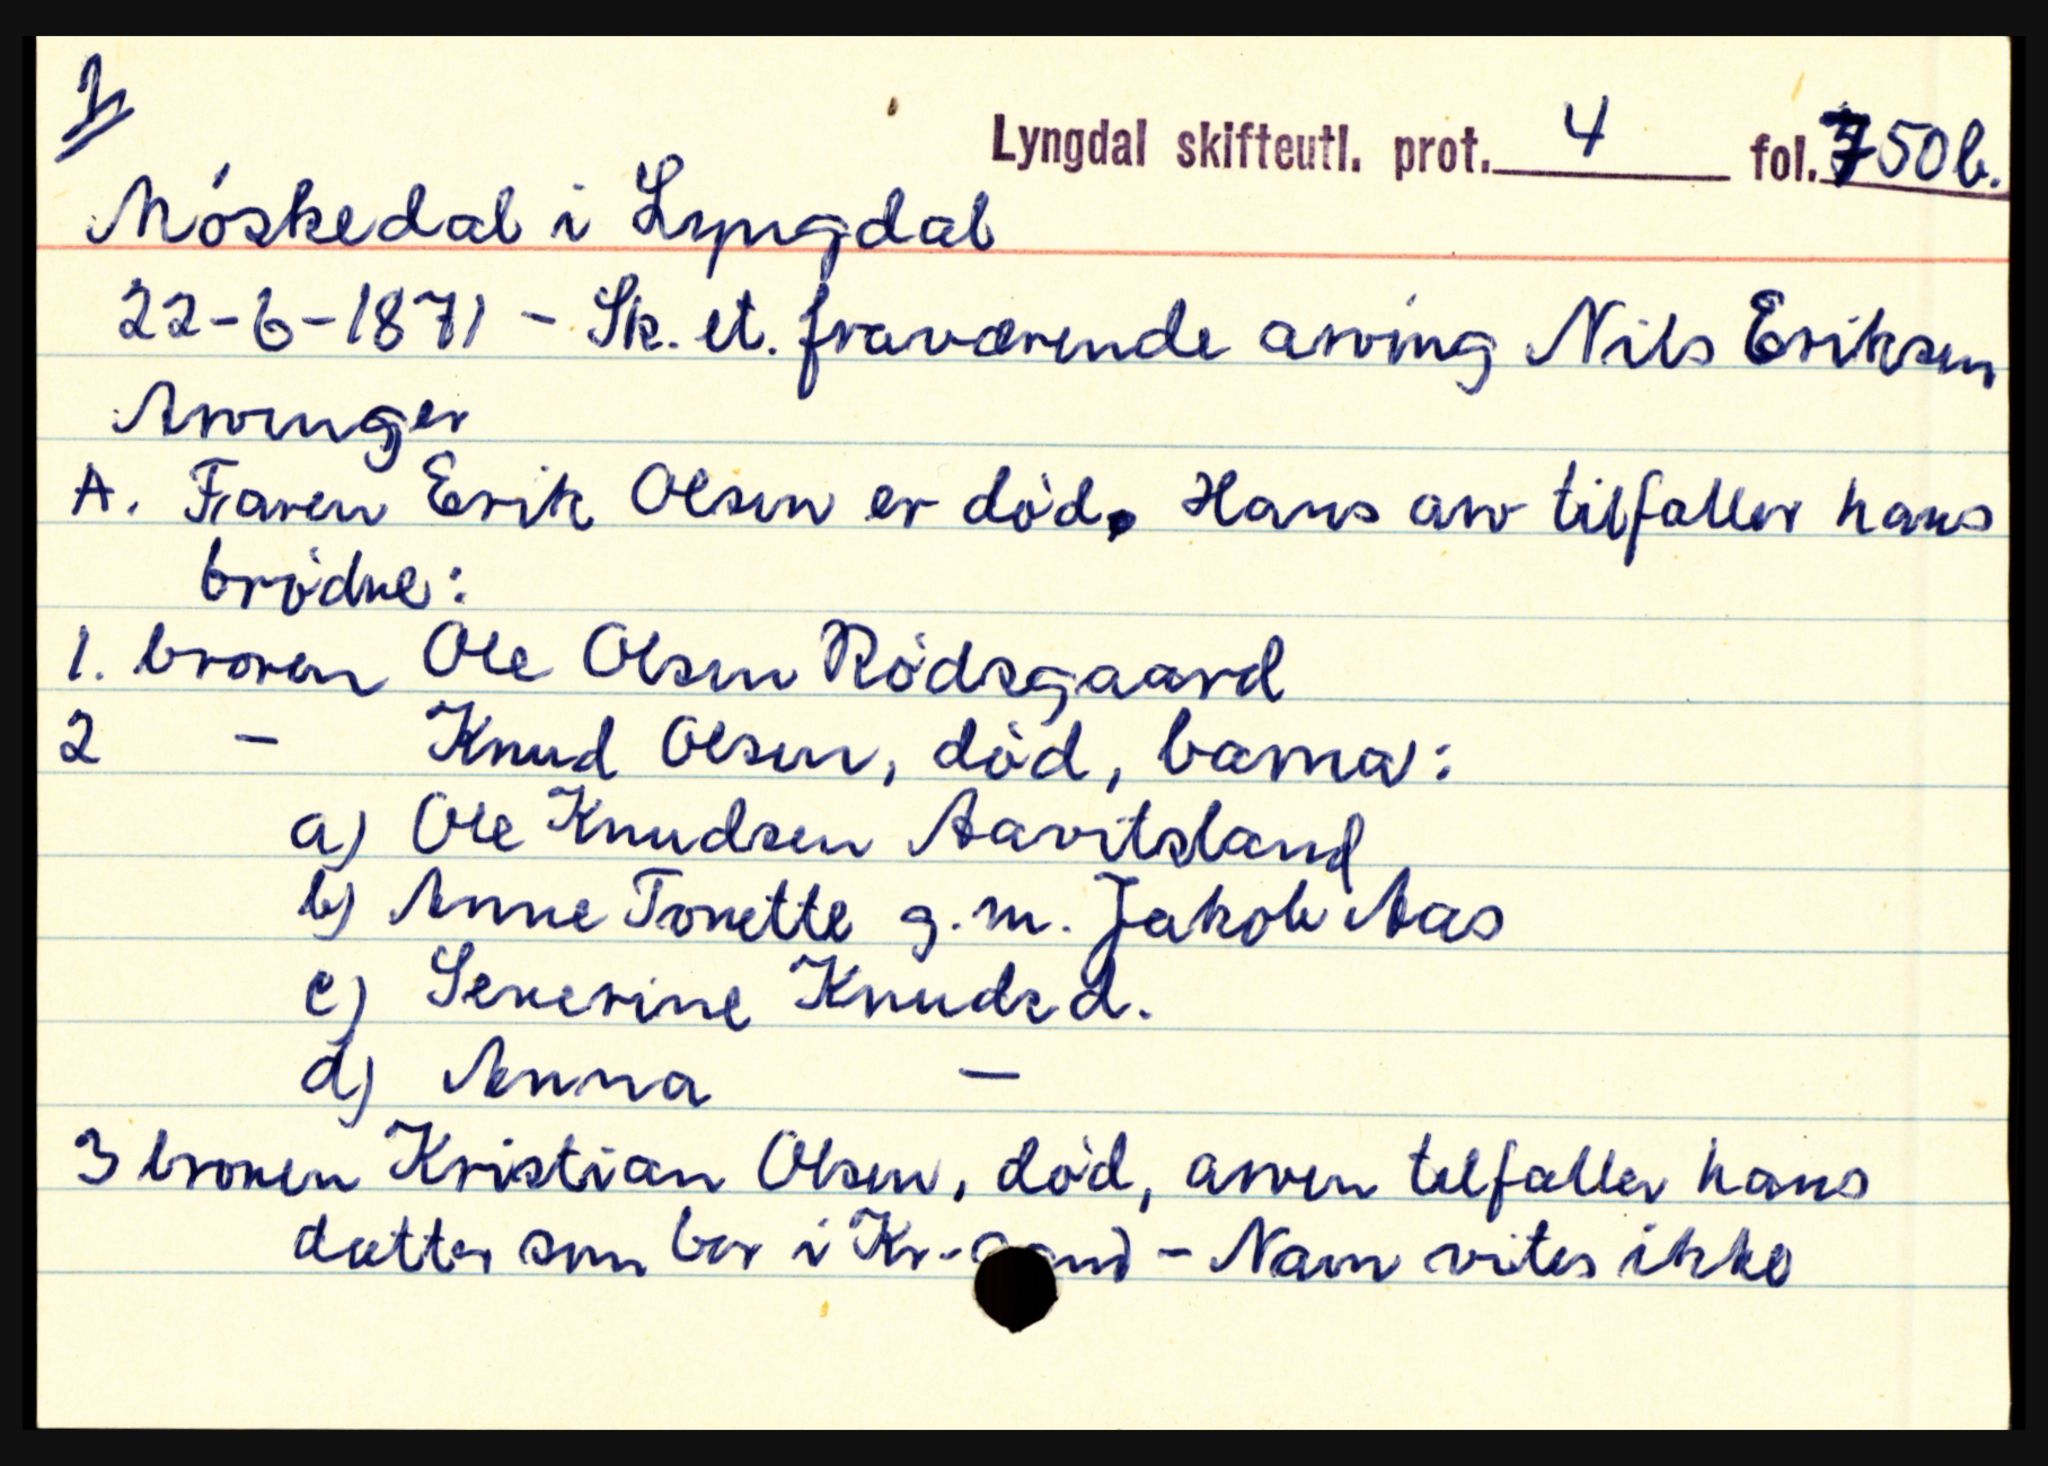 1/
Lyngdal skifteutl. prot. 4 fol. 750b.
Møskedal i Lyngdal
22-6-1871 - Sk. et. fraværende arving Nils Eriksen
Arvinger
A. Faren Erik Olsen er død. Hans arv tilfaller hans
brødre:
1. broren Ole Olsen Rødsgaard
2 - Knud Olsen, død, barna:
a) Ole Knudsen Aavitsland
b) Anne Tonette g. m. Jakob Aas
c) Severine Knudsd.
d) Anna -
3 broren Kristian Olsen, død, arven tilfaller hans
datter som bor i Kr.-sand - Navn vites ikke